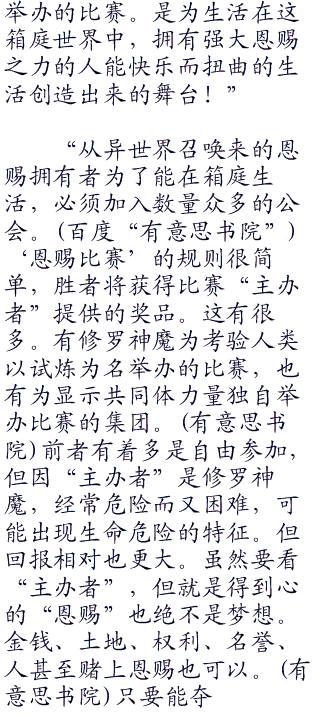 举办的比赛。是为生活在这
箱庭世界中，拥有强大恩赐
之力的人能快乐而扭曲的生
活创造出来的舞台！”
“从异世界召唤来的恩
赐拥有者为了能在箱庭生
活，必须加入数量众多的公
会。(百度“有意思书院”)
‘恩赐比赛’的规则很简
单，胜者将获得比赛“主办
者”提供的奖品。这有很
多。有修罗神魔为考验人类
以试炼为名举办的比赛，也
有为显示共同体力量独自举
办比赛的集团。(有意思书
院)前者有着多是自由参加，
但因“主办者”是修罗神
魔，经常危险而又困难，可
能出现生命危险的特征。但
回报相对也更大。虽然要看
“主办者”，但就是得到心
的“恩赐”也绝不是梦想。
金钱、土地、权利、名誉、
人甚至赌上恩赐也可以。(有
意思书院)只要能夺